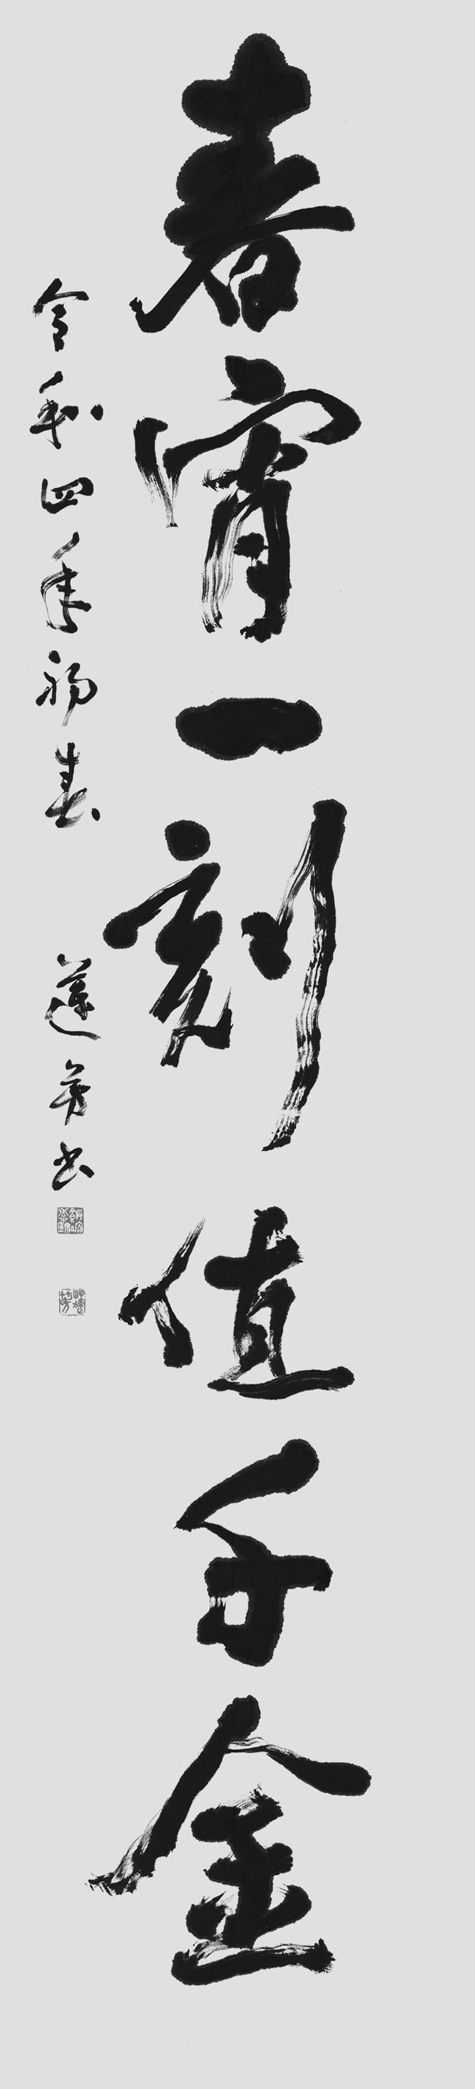 春宵一刻値千金
令和四年初春 蓮芳書